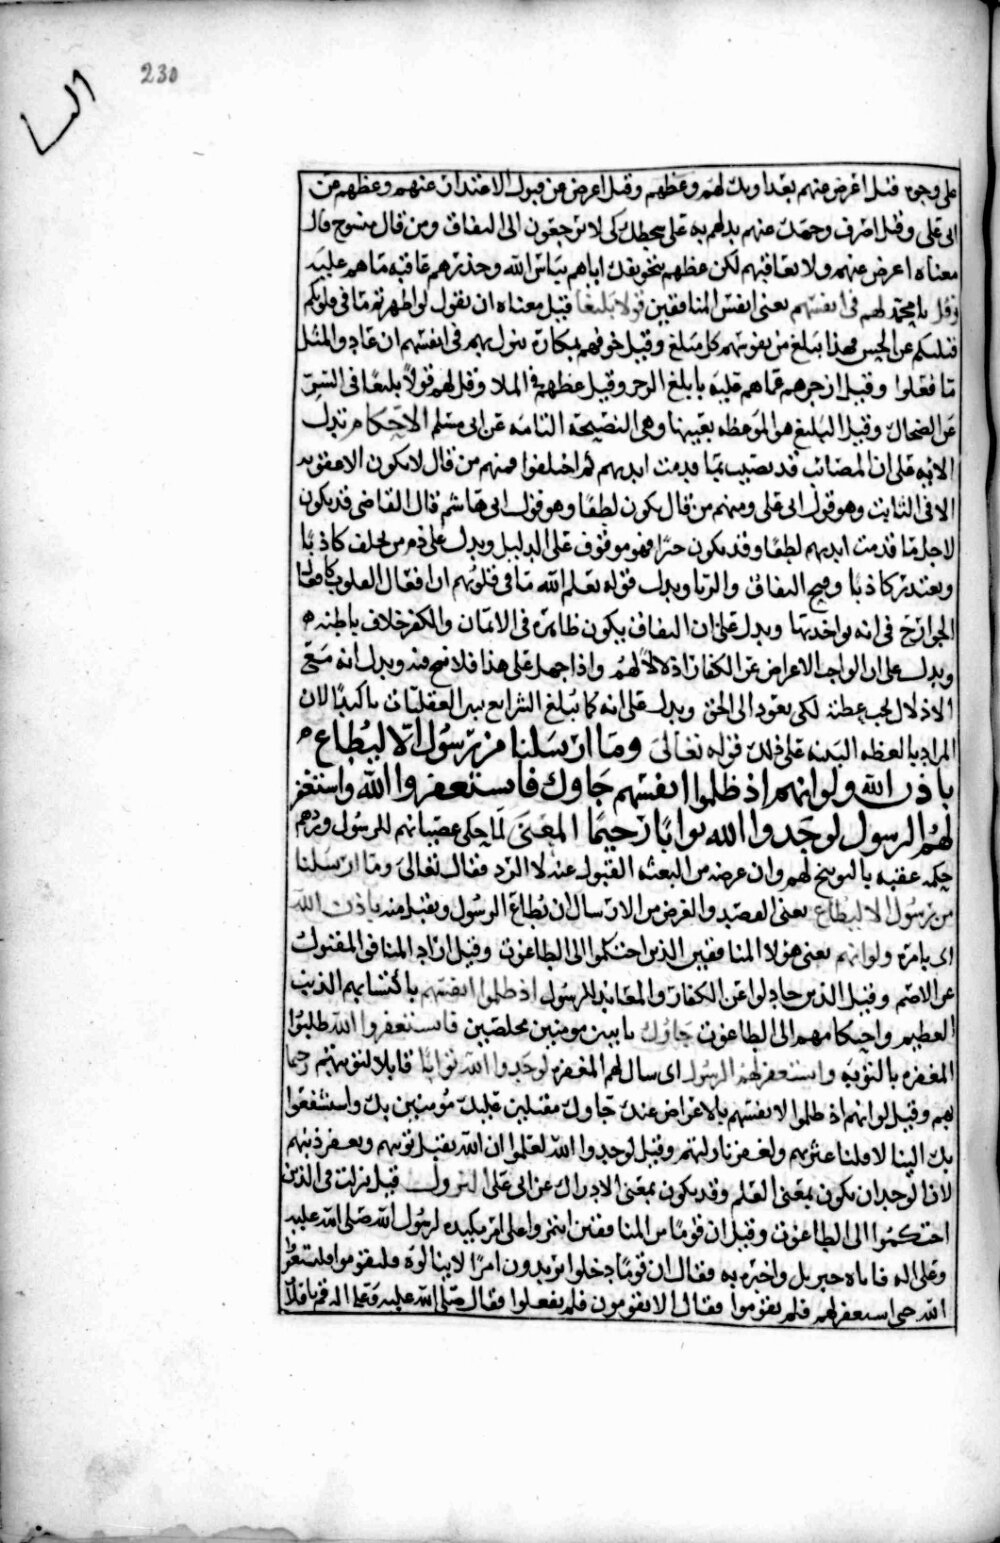 230
النسا
على وجوه قيل اعرض عنهم بعداوتك لهم وعظهم وقيل اعرض عن قبول الاعتذار عنهم وعظهم عن
ابي علي وقيل اصرف وجهك عنهم يدلهم به على سخطك كي لا يرجعون الى النفاق ومن قال منسوخ قال
معناه اعرض عنهم ولا تعاقبهم لكن عظهم بتخويفك اياهم بباس الله وحذرهم عاقبة ما هم عليه
وقل يا محمد لهم في انفسهم يعني انفس المنافقين قولا بليغا قيل معناه ان تقول لو اظهرتم ما في قلوبكم
قتلتكم عن الحسن فهذا يبلغ من نفوسهم كل مبلغ وقيل خوفهم بمكاره تنزل بهم في انفسهم ان عادوا لمثل
ما فعلوا وقيل ازجرهم عما هم عليه بابلغ الزجر وقيل عظهم في الملا وقل لهم قولا بليغا في السر
عن الضحاك وقيل البليغ هو الموعظة بعينها وهي النصيحة التامة عن ابي مسلم الاحكام تدل
الاية على ان المصائب قد تصيب بما قدمت ايديهم ثم اختلفوا فمنهم من قال لا تكون الا عقوبة
الا في التايب وهو قول ابي علي ومنهم من قال يكون لطفا وهو قول ابي هاشم قال القاضي قد يكون
لاجل ما قدمت ايديهم لطفا وقد يكون جزا فهو موقوف على الدليل ويدل على ذم من يحلف كاذبا
ويعتذر كاذبا وقبح النفاق والريا ويدل قوله يعلم الله ما في قلوبهم ان افعال القلوب كافعال
الجوارح في انه يواخذ بها ويدل على ان النفاق يكون ظاهره في الايمان والكفر خلاف باطنه
ويدل على ان الواجب الاعراض عن الكفار اذلالا لهم واذا حمل على هذا فلا نسخ فيه ويدل انه مع
الاذلال يجب عظته لكي يعود الى الحق ويدل على انه كما تبلغ الشرايع يبين العقليات تاكيدا لان
المراد بالعظة التنبيه على ذلك قوله تعالى وما ارسلنا من رسول الا ليطاع
باذن الله ولو انهم اذ ظلموا انفسهم جاوك فاستغفروا الله واستغفر
لهم الرسول لوجدوا الله توابا رحيما المعنى لما حكى عصيانهم للرسول وردهم
حكمه عقبه بالتوبيخ لهم وان غرضه من البعثة القبول عنه لا الرد فقال تعالى وما ارسلنا
من رسول الا ليطاع يعني القصد والغرض من الارسال ان يطاع الرسول ويقبل منه باذن الله
اي بامره ولو انهم يعني هولا المنافقين الذين احتكموا الى الطاغوت وقيل اراد المنافق المقتول
عن الاصم وقيل الذين جادلوا عن الكفار والمعاند للرسول اذ ظلموا انفسهم باكتسابهم الذنب
العظيم واحتكامهم الى الطاغوت جاوك تايبين مومنين مخلصين فاستغفروا الله طلبوا
المغفرة بالتوبة واستغفر لهم الرسول اي سال لهم المغفرة لوجدوا الله توابا قابلا لتوبتهم رحيما
بهم وقيل لو انهم اذ ظلموا لانفسهم بالاعراض عنك جاوك مقبلين عليك مومنين بك واستشفعوا
بك الينا لاقلنا عثرتهم ولغفرنا زلتهم وقيل لوجدوا الله لعلموا ان الله يقبل توبتهم ويغفر ذنبهم
لان الوجدان يكون بمعنى العلم وقد يكون بمعنى الادراك عن ابي علي النزول قيل نزلت في الذين
احتكموا الى الطاغوت وقيل ان قوما من المنافقين ائتمروا على امر يكيده لرسول الله صلى الله عليه
وعلى اله فاتاه جبريل واخبره به فقال ان قوما دخلوا يريدون امرا لا ينالوه فليقوموا فليستغفروا
الله حتى استغفر لهم فلم يقوموا فقال الا تقومون فلم يفعلوا فقال صلى الله عليه وعلى اله قم يا فلان